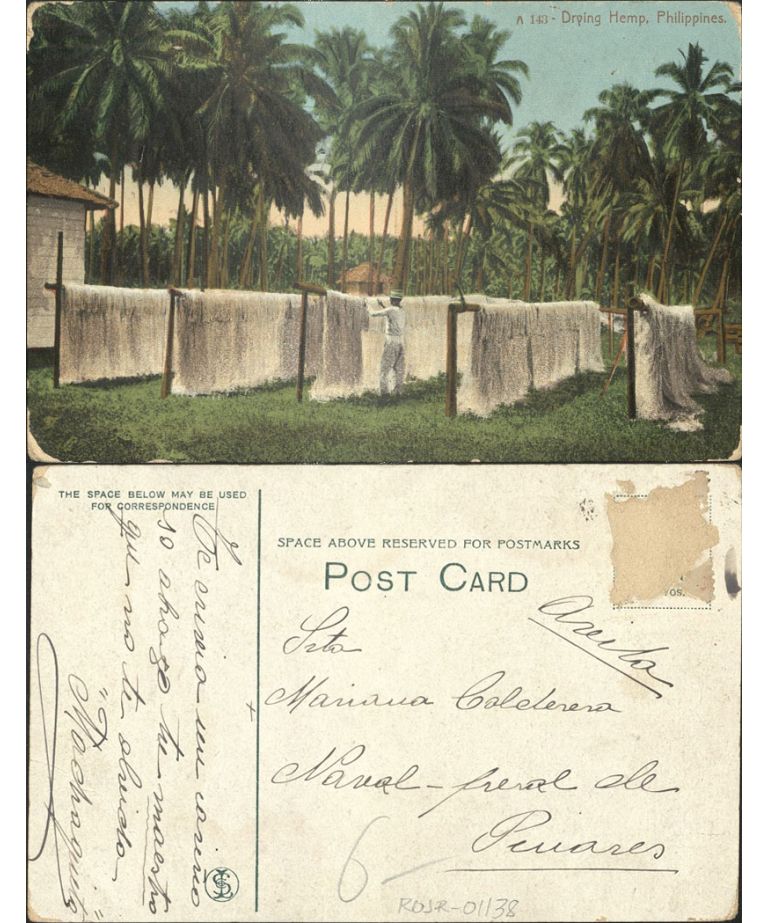 A 143 - Drying Hemp, Philippines.
THE SPACE BELOW MAY BE USED
FOR CORRESPONDENCE
SPACE ABOVE RESERVED FOR POSTMARKS
POST CARD
Te envia un cariño
so abrazo tu maestro
que no te olvida
"Machaquito"
Srta
Mariana Calderera
Naval-peral de
Pinares
6
ROJR-01138